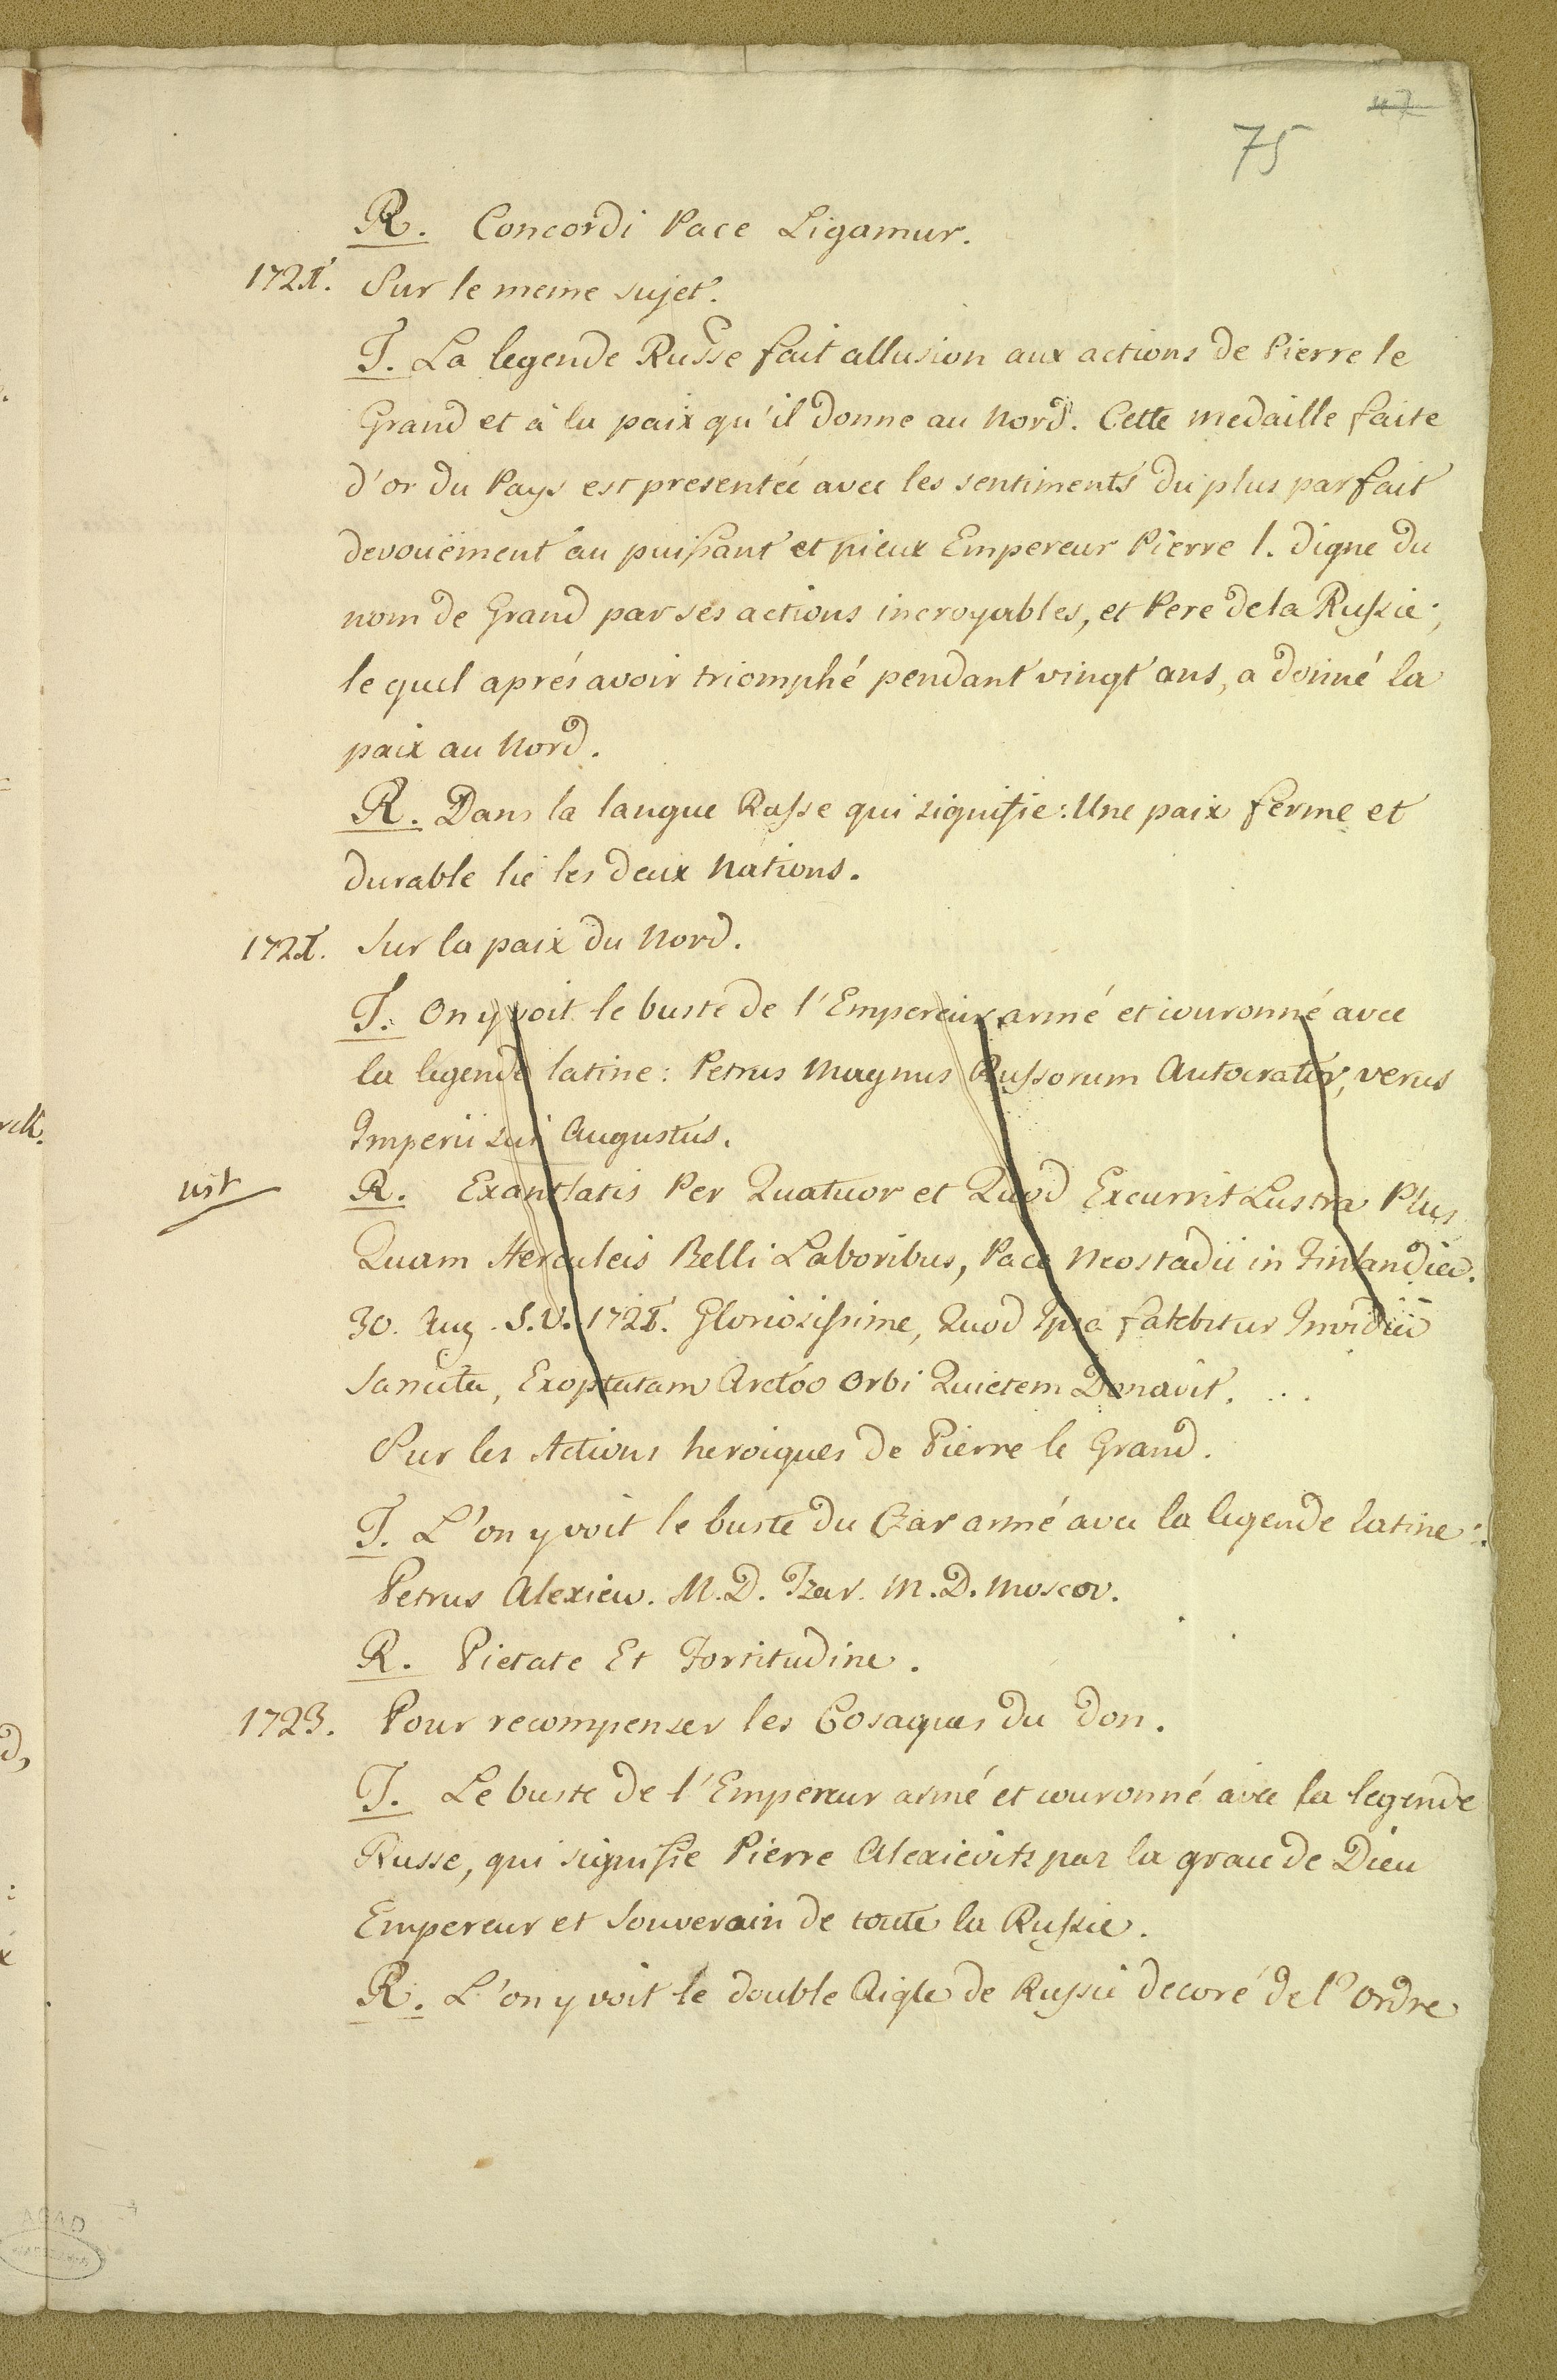 47
75
R. Concordi Pace Ligamur.
1721. Sur le meme sujet.
T. La legende Russe fait allusion aux actions de Pierre le
Grand et à la paix qu'il donne au Nord. Cette medaille faite
d'or du Pays est presentée avec les sentiments du plus parfait
devouëment au puissant et pieux Empereur Pierre I. digne du
nom de Grand par ses actions incroyables, et Pere de la Russie;
le quel aprés avoir triomphé pendant vingt ans, a donné la
paix au Nord.
R. Dans la langue Russe qui signifie: Une paix ferme et
durable lie les deux Nations.
1721. Sur la paix du Nord.
T. On y voit le buste de l'Empereur armé et couronné avec
la legende latine: Petrus Magnus Russorum Autocrator, verus
Imperii sui Augustus.
R. Exantlatis Per Quatuor et Quod Excurrit Lustra Plus
Quam Herculeis Belli Laboribus, Pace Neostadii in Finlandia.
30. Aug. S.V. 1721. Gloriosissime, Quod Ipsa fatebitur Invidia
Sancita, Exoptatam Arctoo Orbi Quietem Donavit. ...
Sur les Actions heroiques de Pierre le Grand.
T. L'on y voit le buste du Czar armé avec la legende latine:
Petrus Alexiew. M.D. Tzar. M.D. Moscov.
R. Pietate Et Fortitudine.
1723. Pour recompenser les Cosaques du Don.
T. Le buste de l'Empereur armé et couronné avec la legende
Russe, qui signifie Pierre Alexievitz par la grace de Dieu
Empereur et Souverain de toute la Russie.
R. L'on y voit le double Aigle de Russie decoré de l'Ordre
AGAD